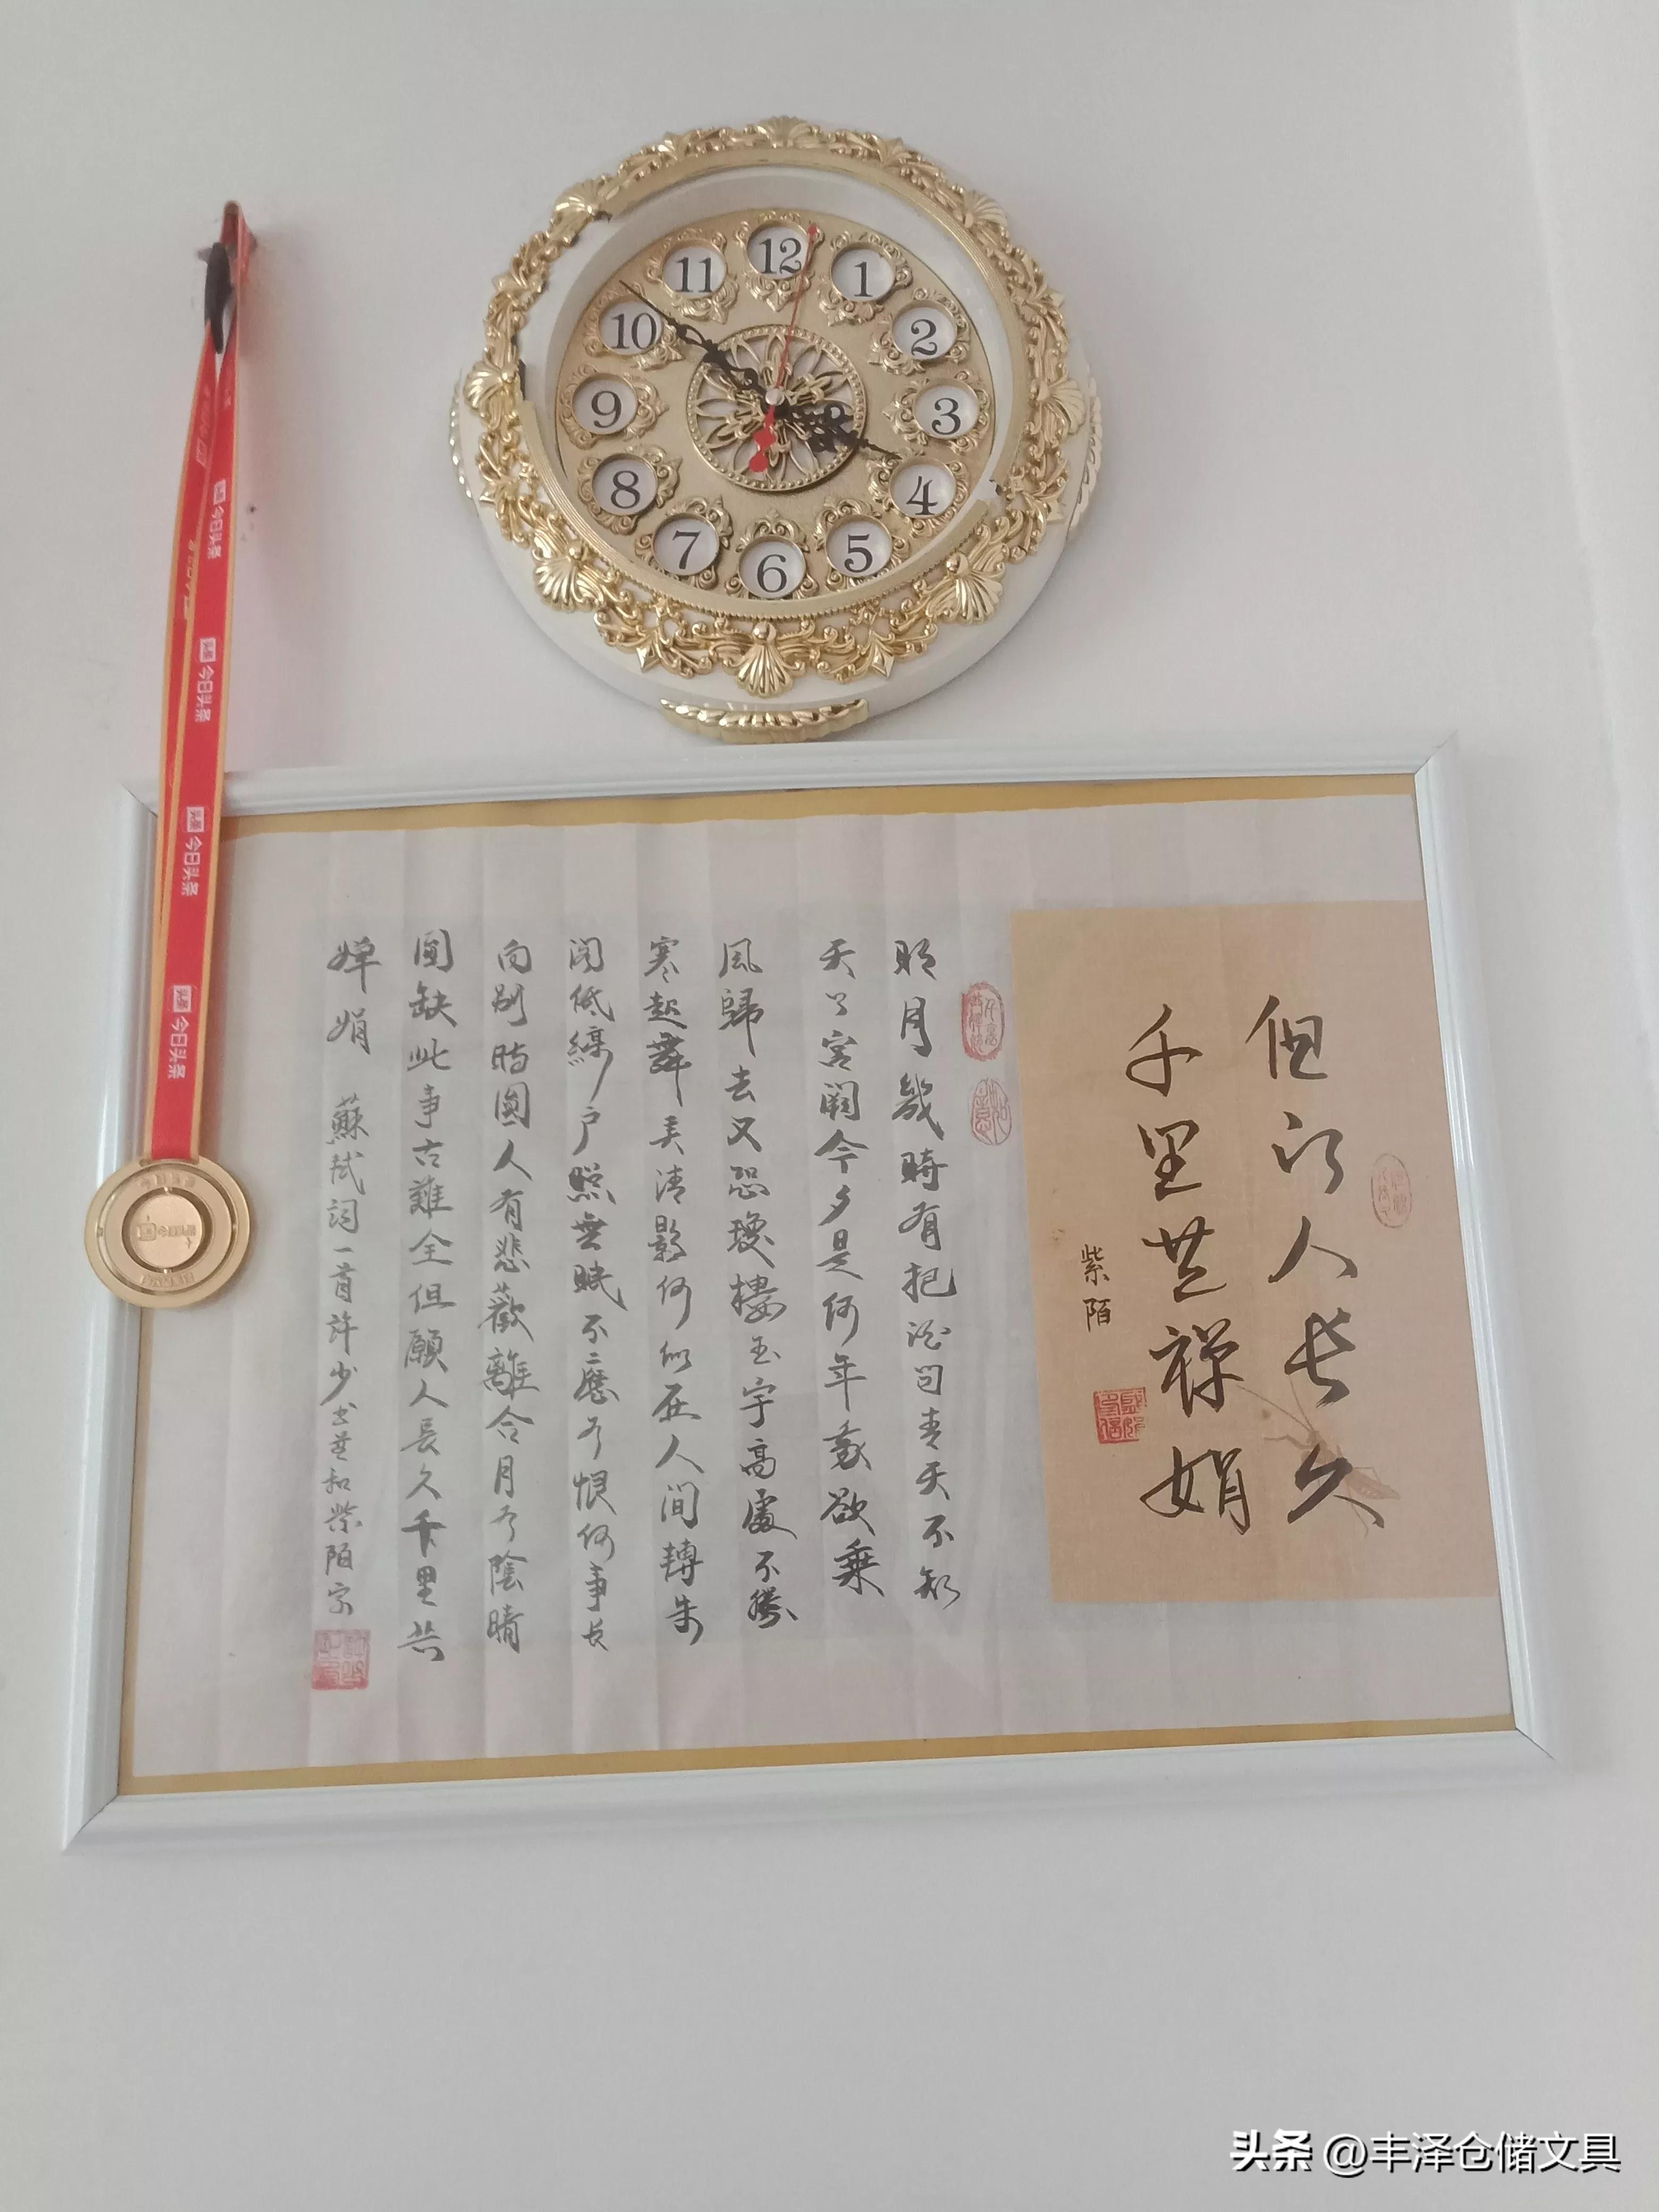 12
1
2
3
4
5
6
7
8
9
10
11
今日头条
今日头条
今日头条
今日头条
但願人長久
千里共嬋娟
紫陌
明月幾時有把酒問青天不知
天上宮闕今夕是何年我欲乘
風歸去又恐瓊樓玉宇高處不勝
寒起舞弄清影何似在人間轉朱
閣低綺戶照無眠不應有恨何事長
向別時圓人有悲歡離合月有陰晴
圓缺此事古難全但願人長久千里共
嬋娟 蘇軾詞一首許少書并和紫陌字
头条 @丰泽仓储文具